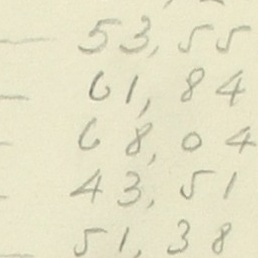 — 53,55
— 61,84
— 68,04
— 43,51
— 51,38